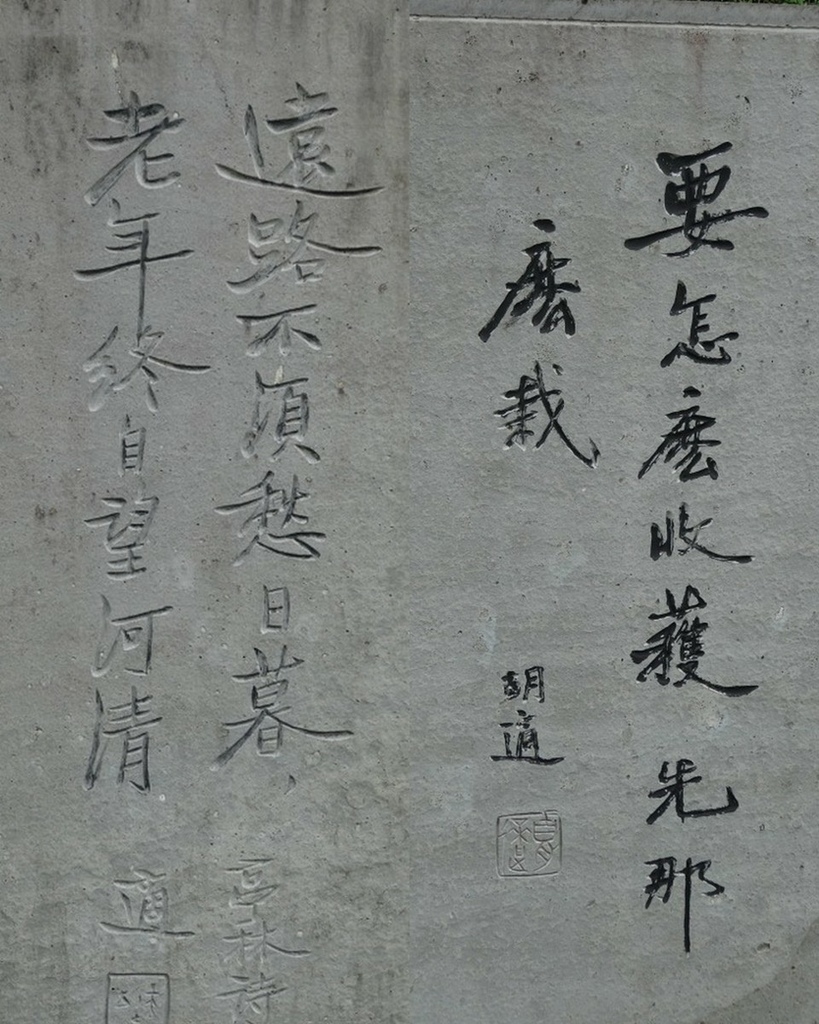 要怎麼收穫 先那
麼栽
胡適
遠路不須愁日暮、 亭林詩
老年終自望河清
適